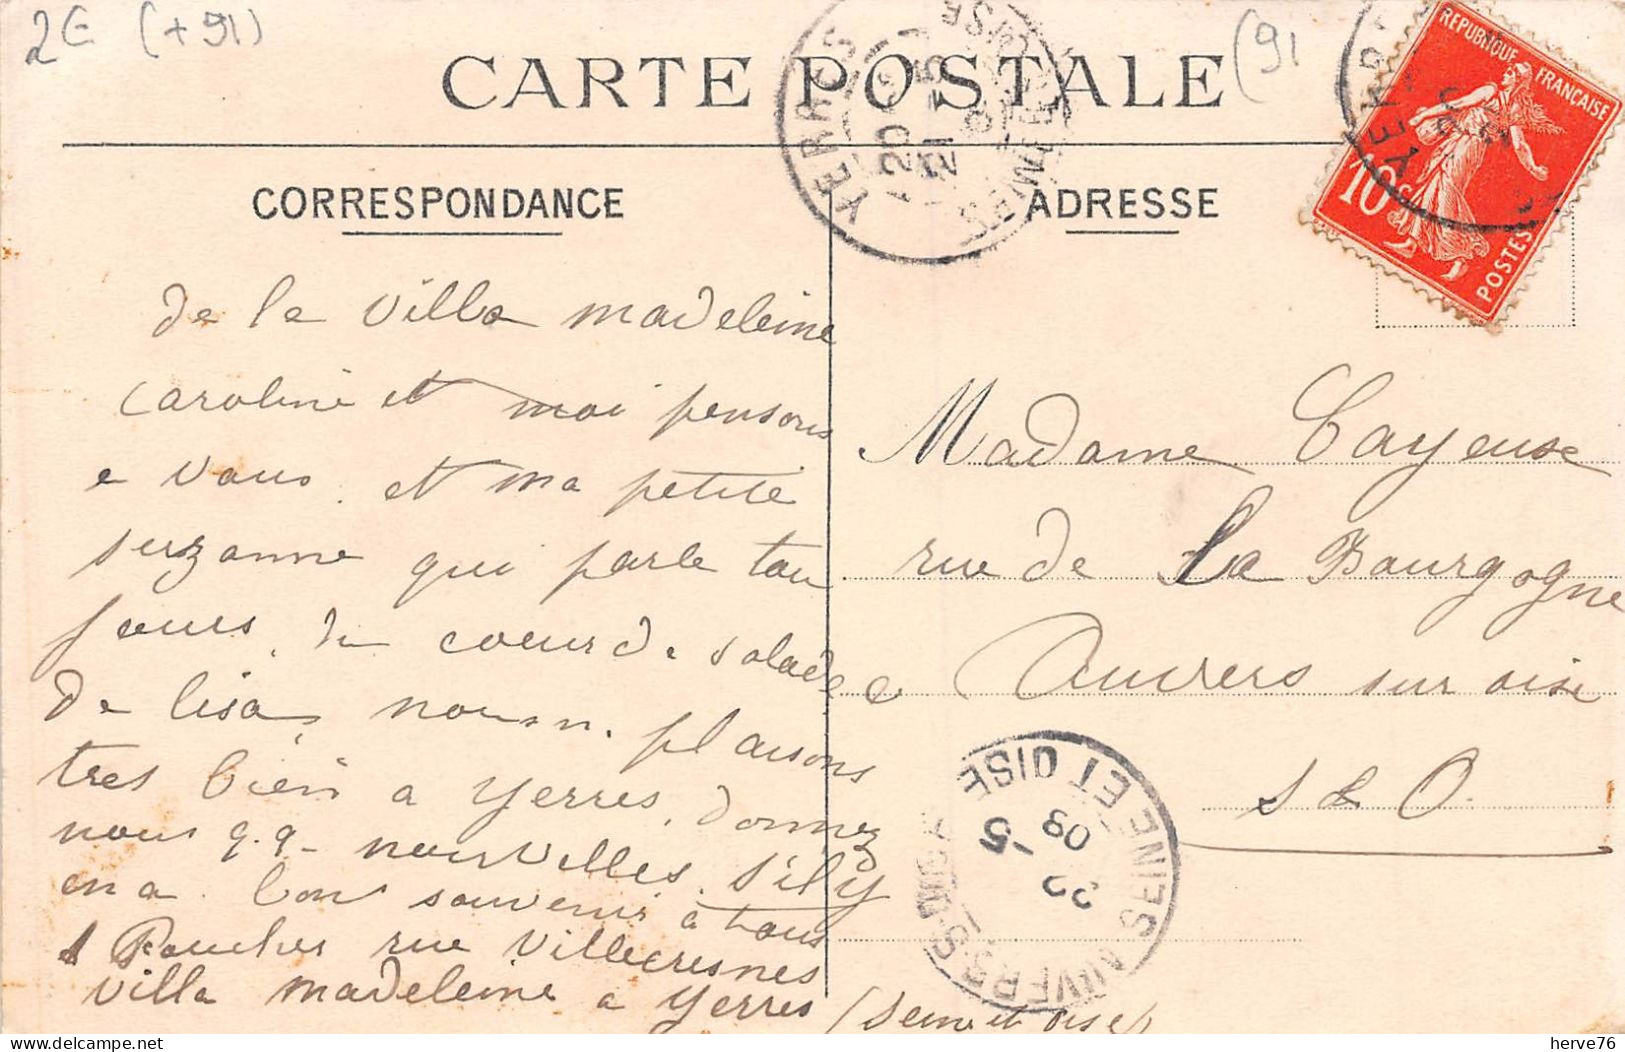 2€ (+91)
(91
CARTE POSTALE
CORRESPONDANCE
ADRESSE
REPUBLIQUE FRANÇAISE
10c
POSTES
YERRES
20
21 - 5
SEINE ET OISE
de la villa madeleine
Caroline et moi pensons
a vous. et ma petite
suzanne qui parle tou
jours. du coeur de salade
de lisa, nous n. plaisons
tres bien a yerres. donnez
nous q.q- nouvelles. s'il y
en a. bon souvenir a tous
Foucher rue Villecresnes
villa madeleine a yerres
(Seine et oise)
Madame Cayeuse
rue de La Bourgogne
Auvers sur oise
S & O.
AUVERS-SUR-OISE
SEINE ET OISE
22 - 5
09
herve76